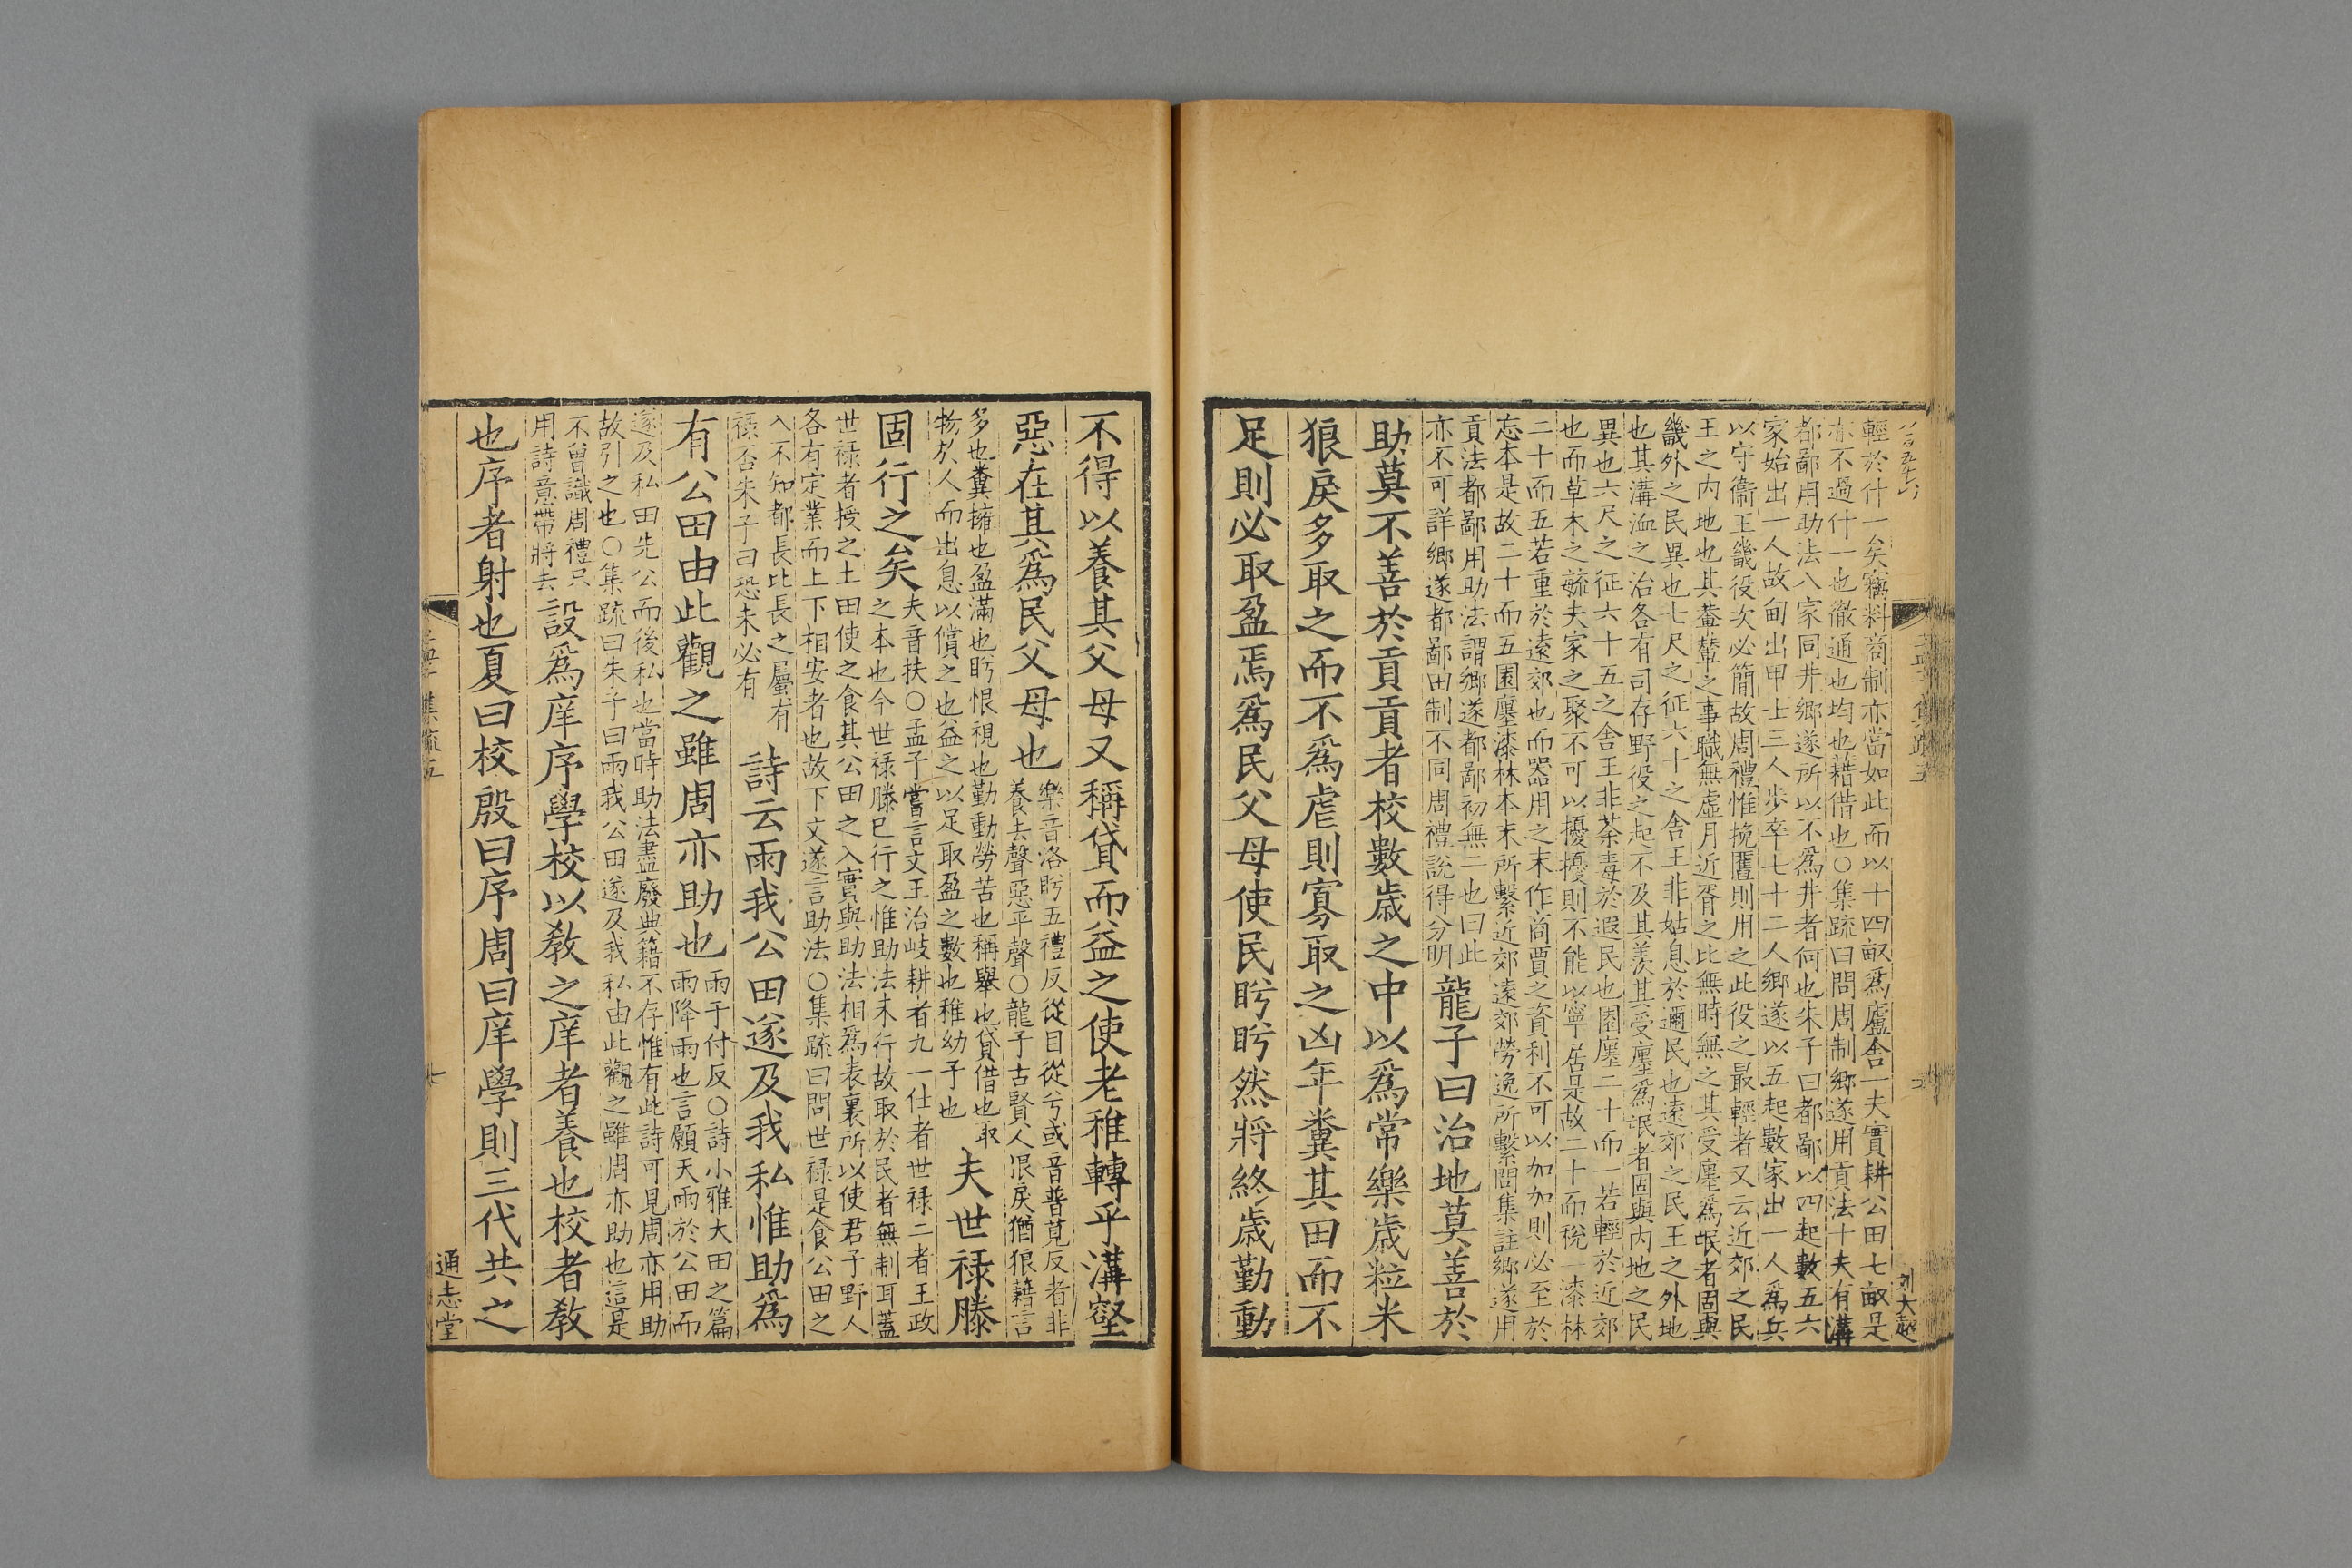 輕於什一矣竊料商制亦當如此而以十四畝爲廬舍一夫實耕公田七畝是
亦不過什一也徹通也均也藉借也○集疏曰問周制鄉遂用貢法十夫有溝
都鄙用助法八家同井鄉遂所以不爲井者何也朱子曰都鄙以四起數五六
家始出一人故甸出甲士三人步卒七十二人鄉遂以五起數家出一人爲兵
以守衞王畿役次必簡故周禮惟挽匶則用之此役之最輕者又云近郊之民
王之内地也其輂輦之事職無虛月近胥之比無時無之其受廛爲氓者固與
畿外之民異也七尺之征六十之舍王非姑息於邇民也遠郊之民王之外地
也其溝洫之治各有司存野役之起不及其羨其受廛爲氓者固與内地之民
異也六尺之征六十五之舍王非荼毒於遐民也園廛二十而一若輕於近郊
也而草木之毓夫家之聚不可以擾擾則不能以寧居是故二十而稅一漆林
二十而五若重於遠郊也而器用之末作商賈之資利不可以加加則必至於
忘本是故二十而五園廛漆林本末所繫近郊遠郊勞逸所繫問集註鄉遂用
貢法都鄙用助法謂鄉遂都鄙初無二也曰此
亦不可詳鄉遂都鄙田制不同周禮說得分明
龍子曰治地莫善於
助莫不善於貢貢者校數歲之中以爲常樂歲粒米
狼戾多取之而不爲虐則寡取之凶年糞其田而不
足則必取盈焉爲民父母使民盻盻然將終歲勤動
不得以養其父母又稱貸而益之使老稚轉乎溝壑
惡在其爲民父母也
樂音洛盻五禮反從目從兮或音普莧反者非
養去聲惡平聲○龍子古賢人狼戾猶狼藉言
多也糞擁也盈滿也盻恨視也勤動勞苦也稱舉也貸借也取
物於人而出息以償之也益之以足取盈之數也稚幼子也
夫世祿滕
固行之矣
夫音扶○孟子嘗言文王治岐耕者九一仕者世祿二者王政
之本也今世祿滕已行之惟助法未行故取於民者無制耳蓋
世祿者授之土田使之食其公田之入實與助法相爲表裏所以使君子野人
各有定業而上下相安者也故下文遂言助法○集疏曰問世祿是食公田之
入不知都長比長之屬有
祿否朱子曰恐未必有
詩云雨我公田遂及我私惟助爲
有公田由此觀之雖周亦助也
雨于付反○詩小雅大田之篇
雨降雨也言願天雨於公田而
遂及私田先公而後私也當時助法盡廢典籍不存惟有此詩可見周亦用助
故引之也○集疏曰朱子曰雨我公田遂及我私由此觀之雖周亦助也這是
不曾識周禮只
用詩意帶將去
設爲庠序學校以敎之庠者養也校者敎
也序者射也夏曰校殷曰序周曰庠學則三代共之
通志堂